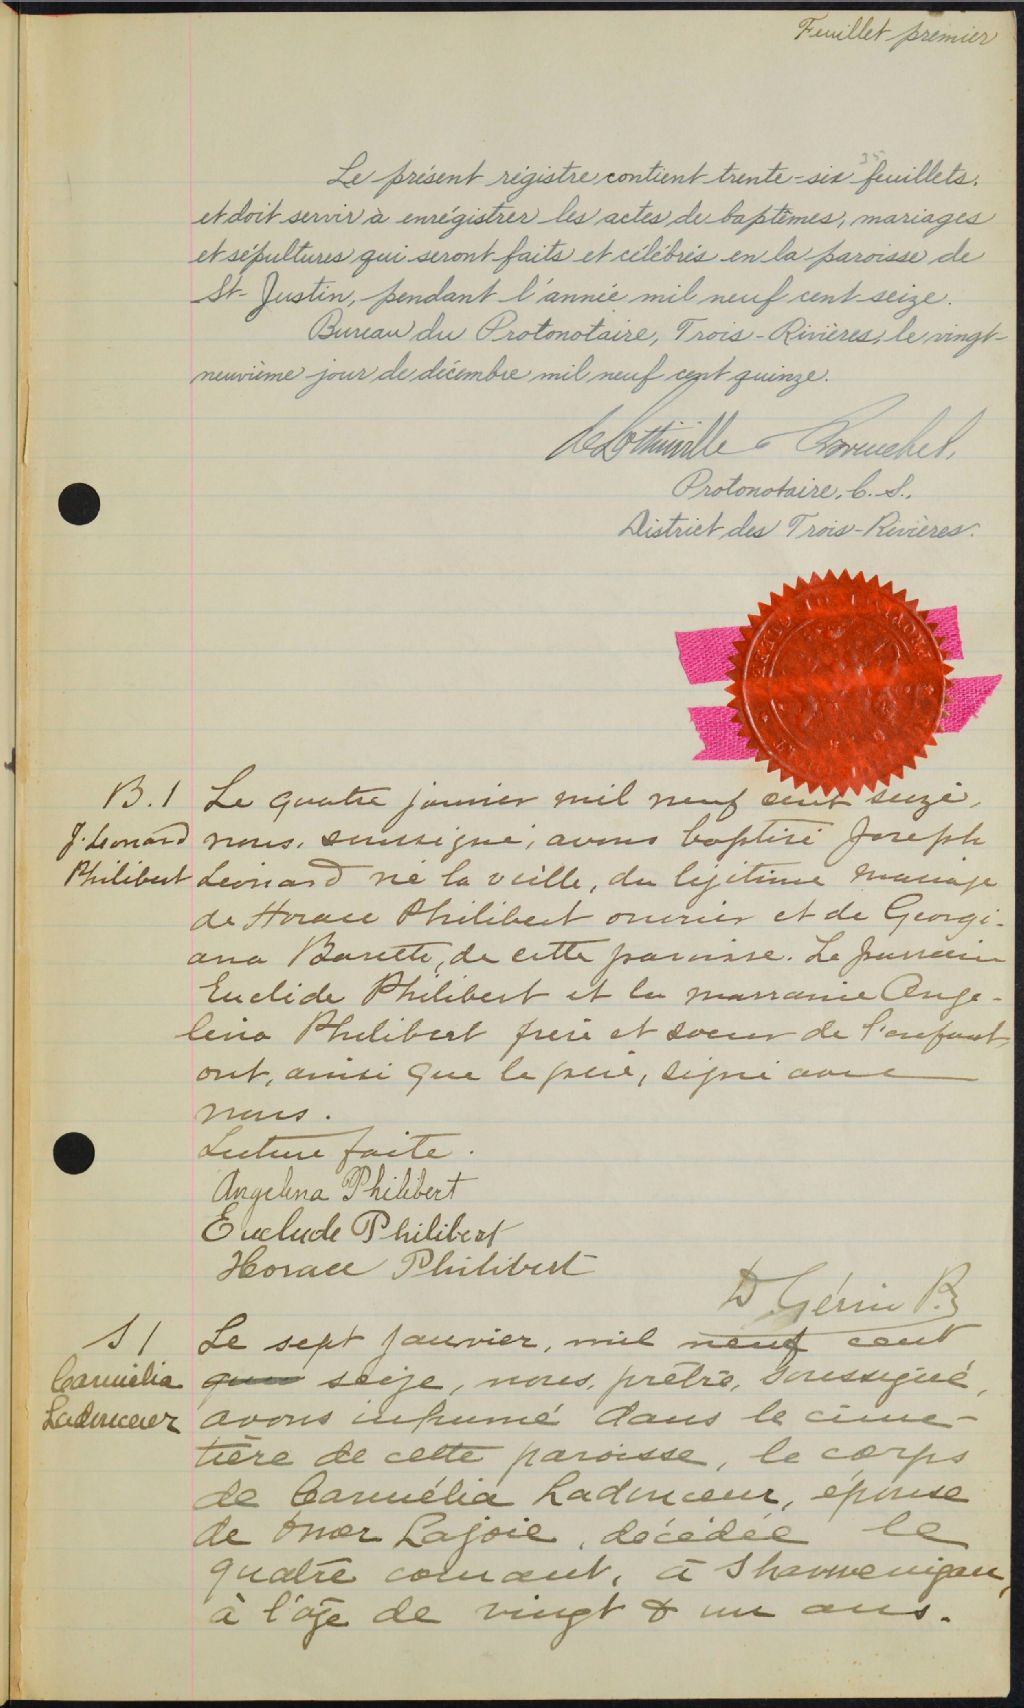 Feuillet premier
35
Le présent régistre contient trente-six feuillets.
et doit servir à enrégistrer les actes de baptêmes, mariages
et sépultures qui seront faits et célébrés en la paroisse de
St-Justin, pendant l'année mil neuf cent seize.
Bureau du Protonotaire, Trois-Rivières, le vingt-
neuvième jour de décembre mil neuf cent quinze.
Protonotaire, C. S.,
District des Trois-Rivières.
B. 1 Le quatre janvier mil neuf cent seize,
J. Leonard nous, soussigné, avons baptisé Joseph
Philibert Léonard né la veille, du légitime mariage
de Horace Philibert ouvrier et de Georgi-
ana Barette, de cette paroisse. Le parrain
Euclide Philibert et la marraine Ange-
lina Philibert frère et soeur de l'enfant
ont, ainsi que le père, signé avec
nous.
Lecture faite.
Angelina Philibert
Euclude Philibert
Horace Philibert
D. Gérin P.
S 1 Le sept janvier, mil neuf cent
Carmélia seize, nous, prêtre, soussigné,
Ladouceur avons inhumé dans le cime-
tière de cette paroisse, le corps
de Carmélia Ladouceur, épouse
de Omer Lajoie, décédée le
quatre courant, à Shawenigan,
à l'âge de vingt & un ans.